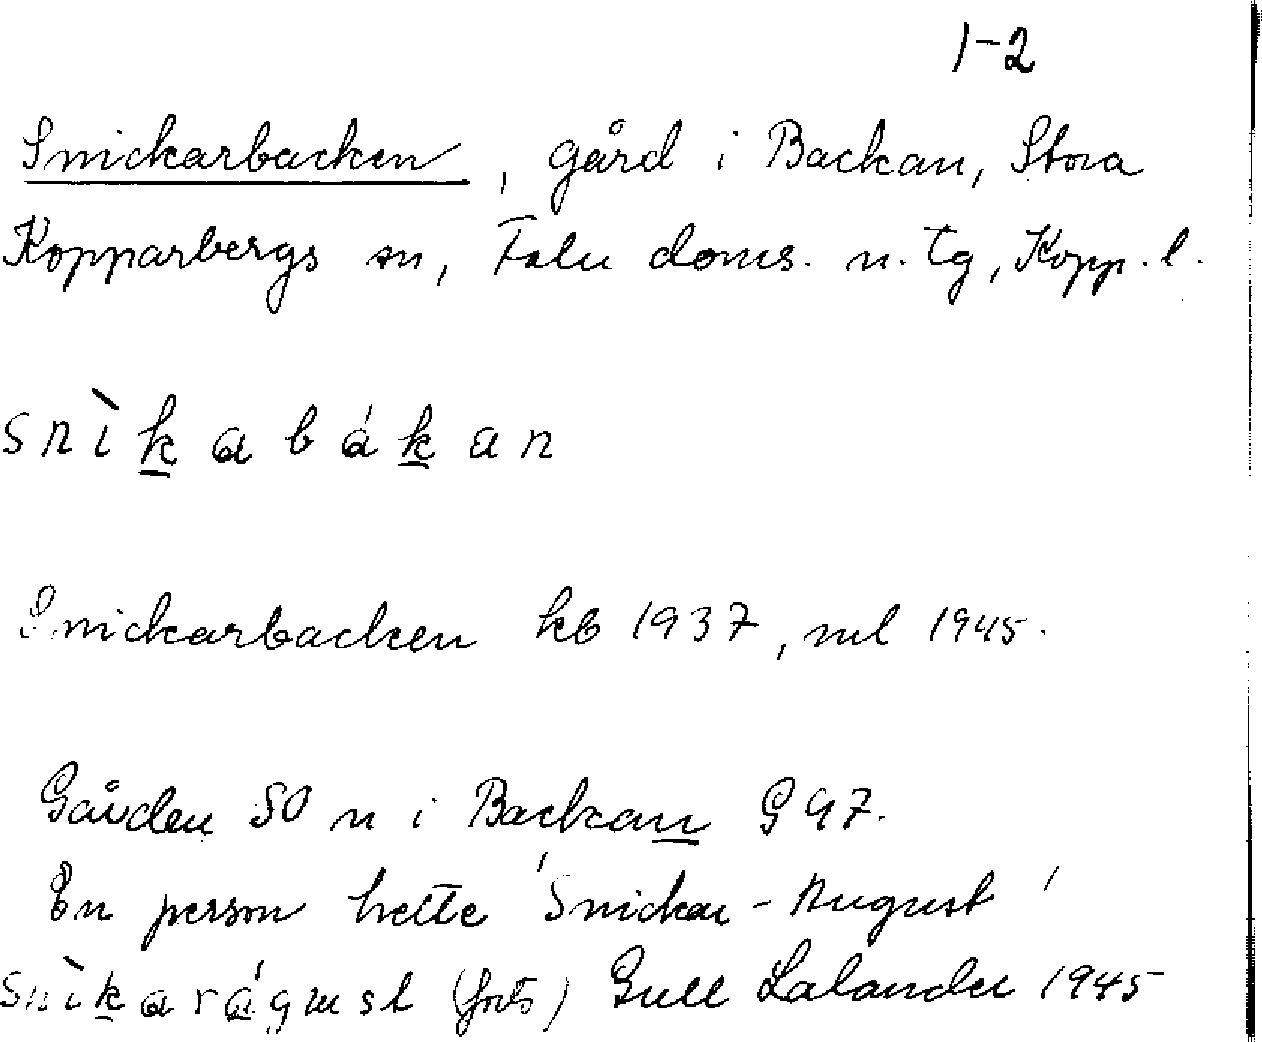 1-2
Snickarbacken, gård i Backan, Stora
Kopparbergs sn, Falu doms. n. tg, Kopp. l.
snìkabákan
Snickarbacken kb 1937, ml 1945.
Gården SO n i Backan G 97.
En person hette 'Snickar-August'
snìkarágust (forts) Gull Lalander 1945